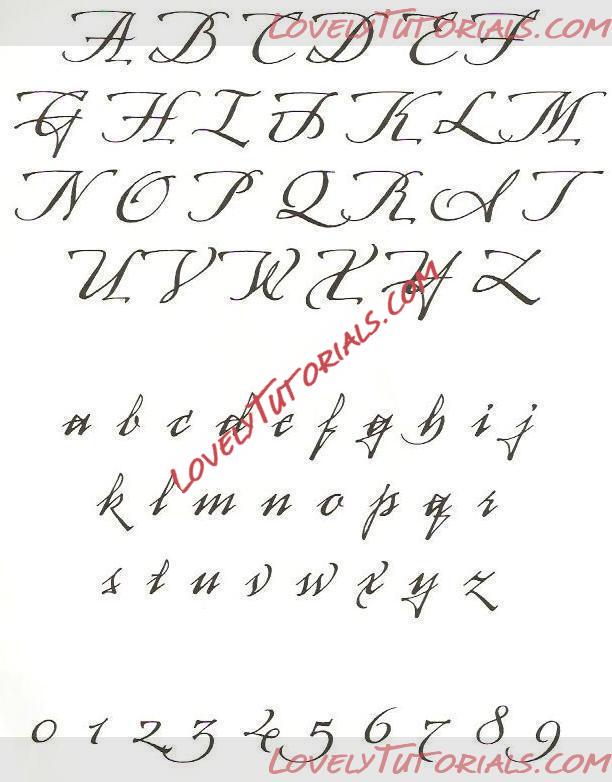 LovelyTutorials.com
A B C D E F
G H I J K L M
N O P Q R S T
U V W X Y Z
LovelyTutorials.com
a b c d e f g h i j
k l m n o p q r
s t u v w x y z
0 1 2 3 4 5 6 7 8 9
LovelyTutorials.com